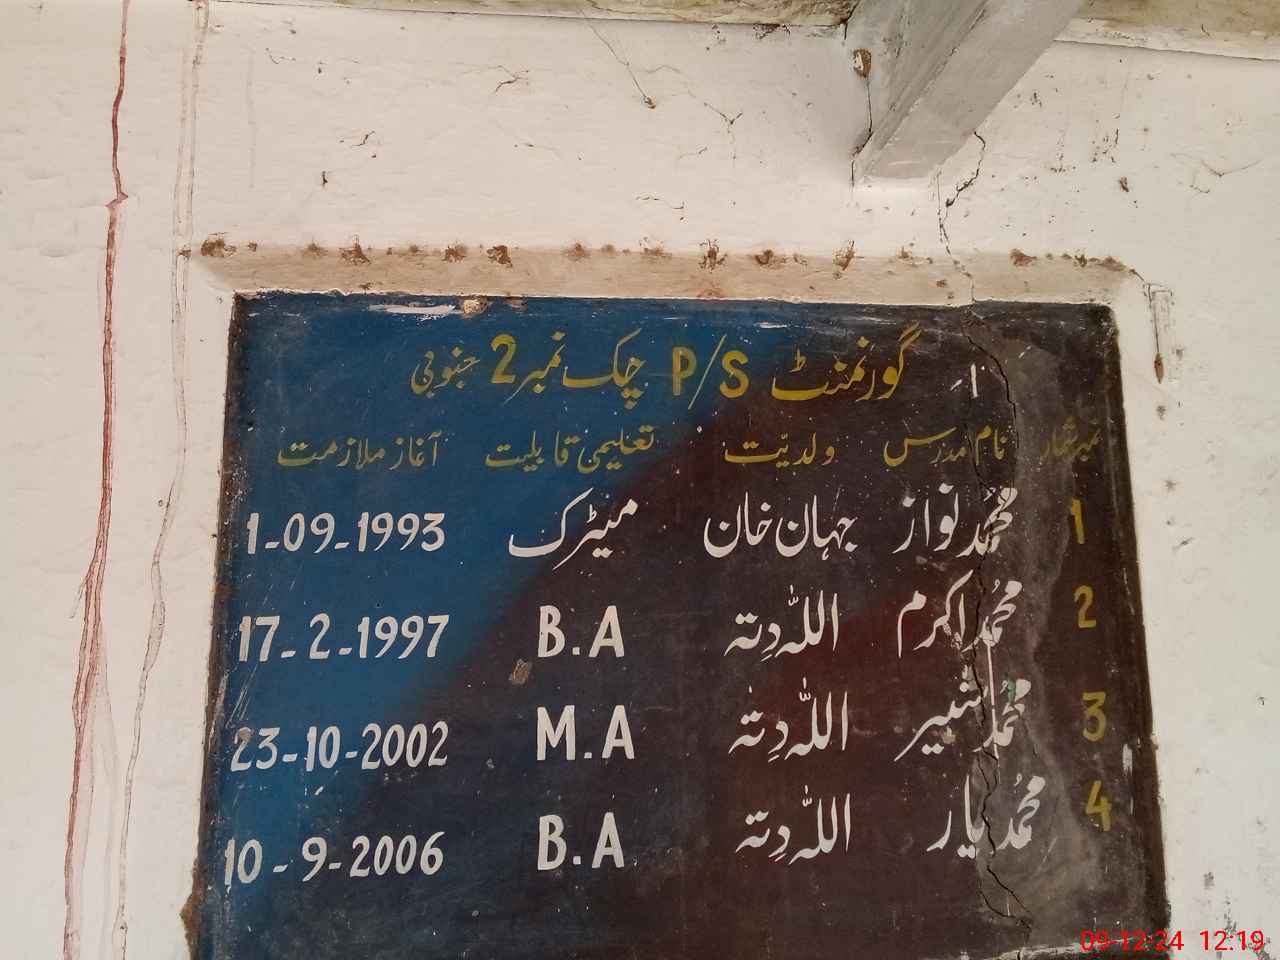 گورنمنٹ P/S چک نمبر 2 جنوبی
نمبر شمار نام مدرس ولدیّت تعلیمی قابلیت آغاز ملازمت
1 محمد نواز جہان خان میٹرک 1-09-1993
2 محمد اکرم اللّٰہ دِتہ B.A 17-2-1997
3 محمد شبیر اللّٰہ دِتہ M.A 23-10-2002
4 محمد یار اللّٰہ دِتہ B.A 10-9-2006
09-12-24 12:19